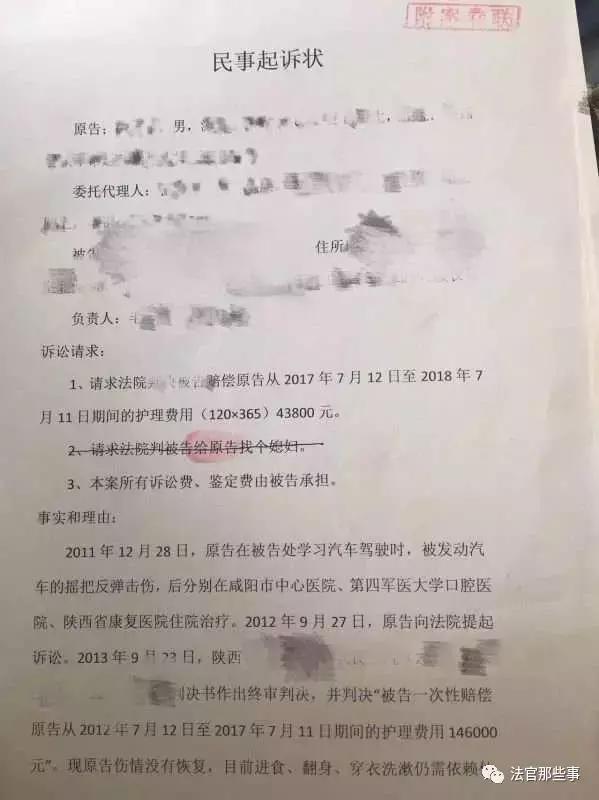 附案卷联
民事起诉状
原告： 男，
委托代理人：
被告 住所
负责人：
诉讼请求：
1、请求法院判决被告赔偿原告从2017年7月12日至2018年7
月11日期间的护理费用（120×365）43800元。
2、请求法院判被告给原告找个媳妇。
3、本案所有诉讼费、鉴定费由被告承担。
事实和理由：
2011年12月28日，原告在被告处学习汽车驾驶时，被发动汽
车的摇把反弹击伤，后分别在咸阳市中心医院、第四军医大学口腔医
院、陕西省康复医院住院治疗。2012年9月27日，原告向法院提起
诉讼。2013年9月23日，陕西
判决书作出终审判决，并判决“被告一次性赔偿
原告从2012年7月12日至2017年7月11日期间的护理费用146000
元”。现原告伤情没有恢复，目前进食、翻身、穿衣洗漱仍需依赖
法官那些事